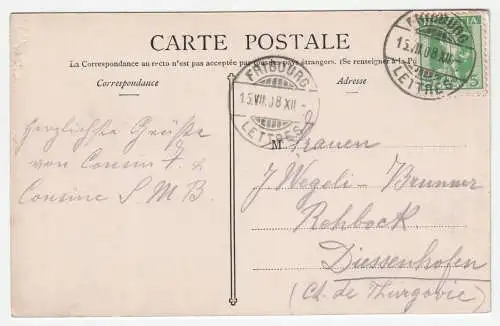 CARTE POSTALE
La Correspondance au recto n'est pas acceptée par tous les pays étrangers. (Se renseigner à la
Correspondance
Adresse
FRIBOURG
15.VII.08 XII
LETTRES
FRIBOURG
15.VII.08 XII
LETTRES
5
Herzlichste Grüsse
von Cousin F. &
Cousine S M B.
M Frauen
J Wegeli-Brunner
Rehbock
Diessenhofen
(Ct. de Thurgovie)